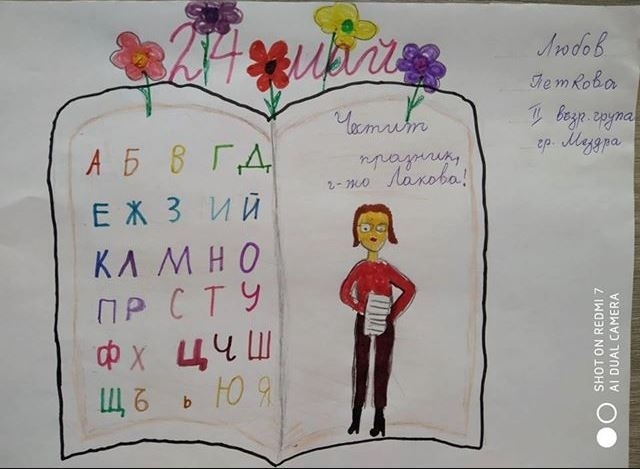 24 май
Любов
Петкова
II възр. група
гр. Мездра
Честит
празник,
г-жо Лакова!
А Б В Г Д
Е Ж З И Й
К Л М Н О
П Р С Т У
Ф Х Ц Ч Ш
Щ Ъ ь Ю Я
SHOT ON REDMI 7
AI DUAL CAMERA